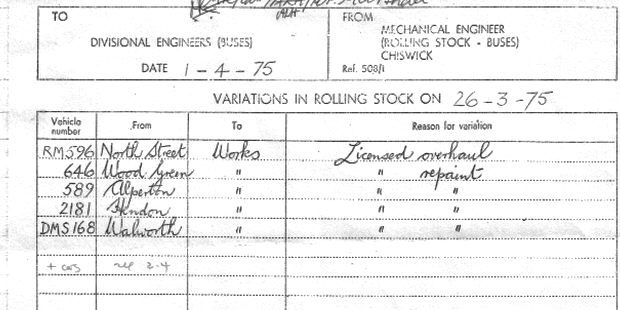 TO
DIVISIONAL ENGINEERS (BUSES)
DATE 1-4-75
FROM
MECHANICAL ENGINEER
(ROLLING STOCK - BUSES)
CHISWICK
Ref. 508/1
VARIATIONS IN ROLLING STOCK ON 26-3-75
Vehicle number From To Reason for variation
RM596 North Street Works Licensed overhaul
646 Wood Green " " repaint
589 Alperton " " "
2181 Hendon " " "
DMS168 Walworth " " "
2-4